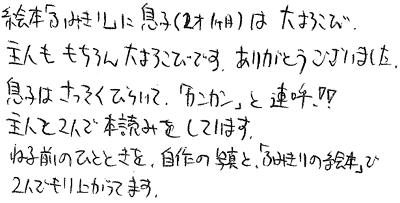 絵本「ふみきり」に息子(2才1ヶ月)は大よろこび。
主人ももちろん大よろこびです。ありがとうございました。
息子はさっそくひらいて、「カンカン」と連呼!!
主人と2人で本読みをしています。
ね子前のひとときを、自作の写真と、「ふみきりの絵本」で
2人でもり上がってます。